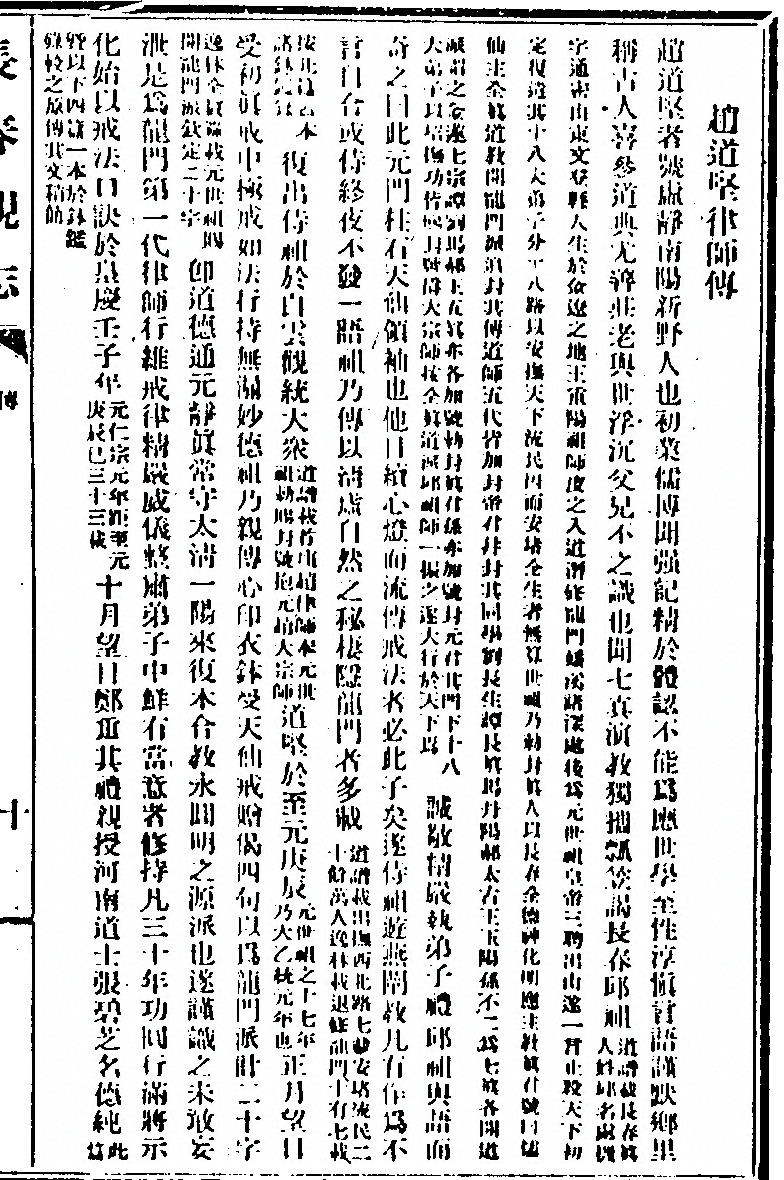 趙道堅律師傳
趙道堅者號虛靜南陽新野人也初業儒博聞强記精於體認不能爲應世學至性淳愼言語謹默鄉里
稱古人喜參道典尤諄莊老與世浮沉父兄不之識也聞七眞演敎獨攜瓢笠謁長春邱祖道譜載長春眞人姓邱名處機
字通密山東文登縣人生於金遼之地王重陽祖師度之入道潛修龍門磻溪諸深處後爲元世祖皇帝三聘出山遂一言止殺天下初
定復遣其十八大弟子分十八路以安撫天下流民因而安堵全生者無算世祖乃勅封眞人以長春全德神化明應主敎眞君號曰儒
仙主全眞道敎開龍門派追封其傳道師五代皆加封帝君幷封其同學劉長生譚長眞馬丹陽郝太古王玉陽孫不二爲七眞各開道
派謂之金蓮七宗譚劉馬郝王五眞亦各加號勅封眞君孫亦加號封元君其門下十八
大弟子以培撫功皆 封號爲大宗師按全眞道派邱祖師一振之遂大行於天下焉 誠敬精嚴執弟子禮邱祖與語而
奇之曰此元門柱石天仙領袖也他日續心燈而流傳戒法者必此子矣遂侍祖遊燕闡敎凡有作爲不
言自合或侍終夜不發一語祖乃傳以淸虛自然之秘棲隱龍門者多載道譜載出撫西北路七載安堵流民二十餘萬人逸林載退修龍門十有七載
按 本
復出侍祖於白雲觀統大衆道譜載首座趙律師奉元世祖勅賜封號抱元趙大宗師道堅於至元庚辰元世祖之十七年乃大乙統元年也正月望日
受初眞戒中極戒如法行持無漏妙德祖乃親傳心印衣鉢受天仙戒贈偈四句以爲龍門派計二十字
逸林全眞錄載元世祖朝開龍門派欽定二十字卽道德通元靜眞常守太淸一陽來復本合敎永圓明之源派也遂謹識之未敢妄
泄是爲龍門第一代律師行維戒律精嚴威儀整肅弟子中鮮有當意者修持凡三十年功圓行滿將示
化始以戒法口訣於皇慶壬子年元仁宗元年距至元庚辰已三十三載十月望日鄭重其禮親授河南道士張碧芝名德純此篇
曁以下四篇一本於鉢鑑
續較之原傳其文稍簡
長春觀志
傳
十